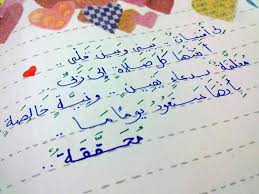 لي أمنيات .. بيني وبين قلبي ..
أبثها كل صلاة إلى ربي ..
معلقة بدعاء يقين .. ونية خالصةٍ
بأنها ستعود يومًا ما ..
مُحَقَّقَة ..